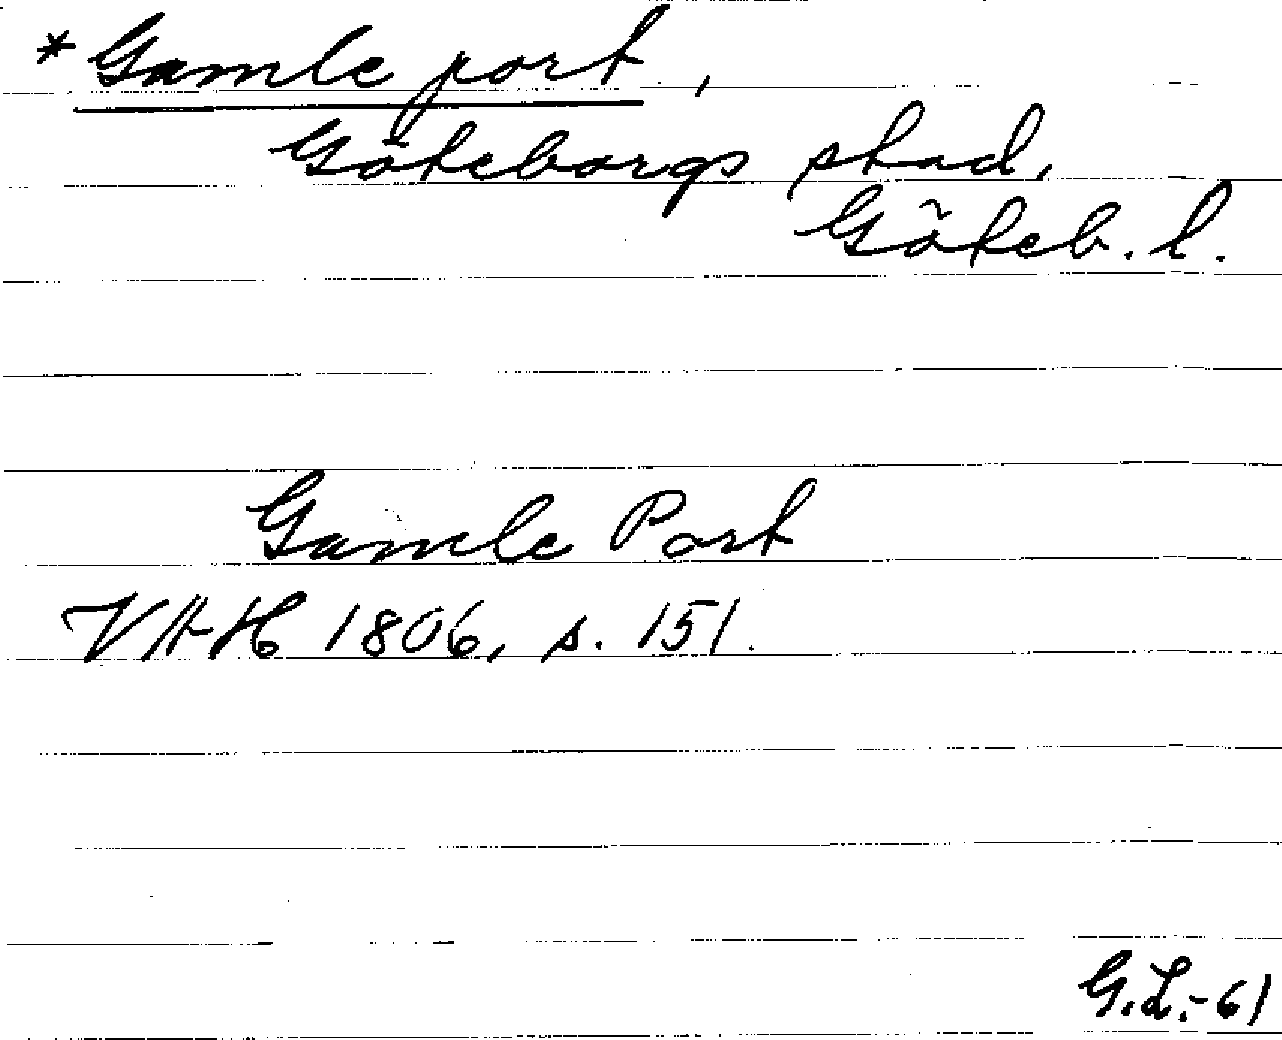 *Gamle port,
Göteborgs stad,
Göteb. l.
Gamle Port
VHH 1806, s. 151.
G.L.-61